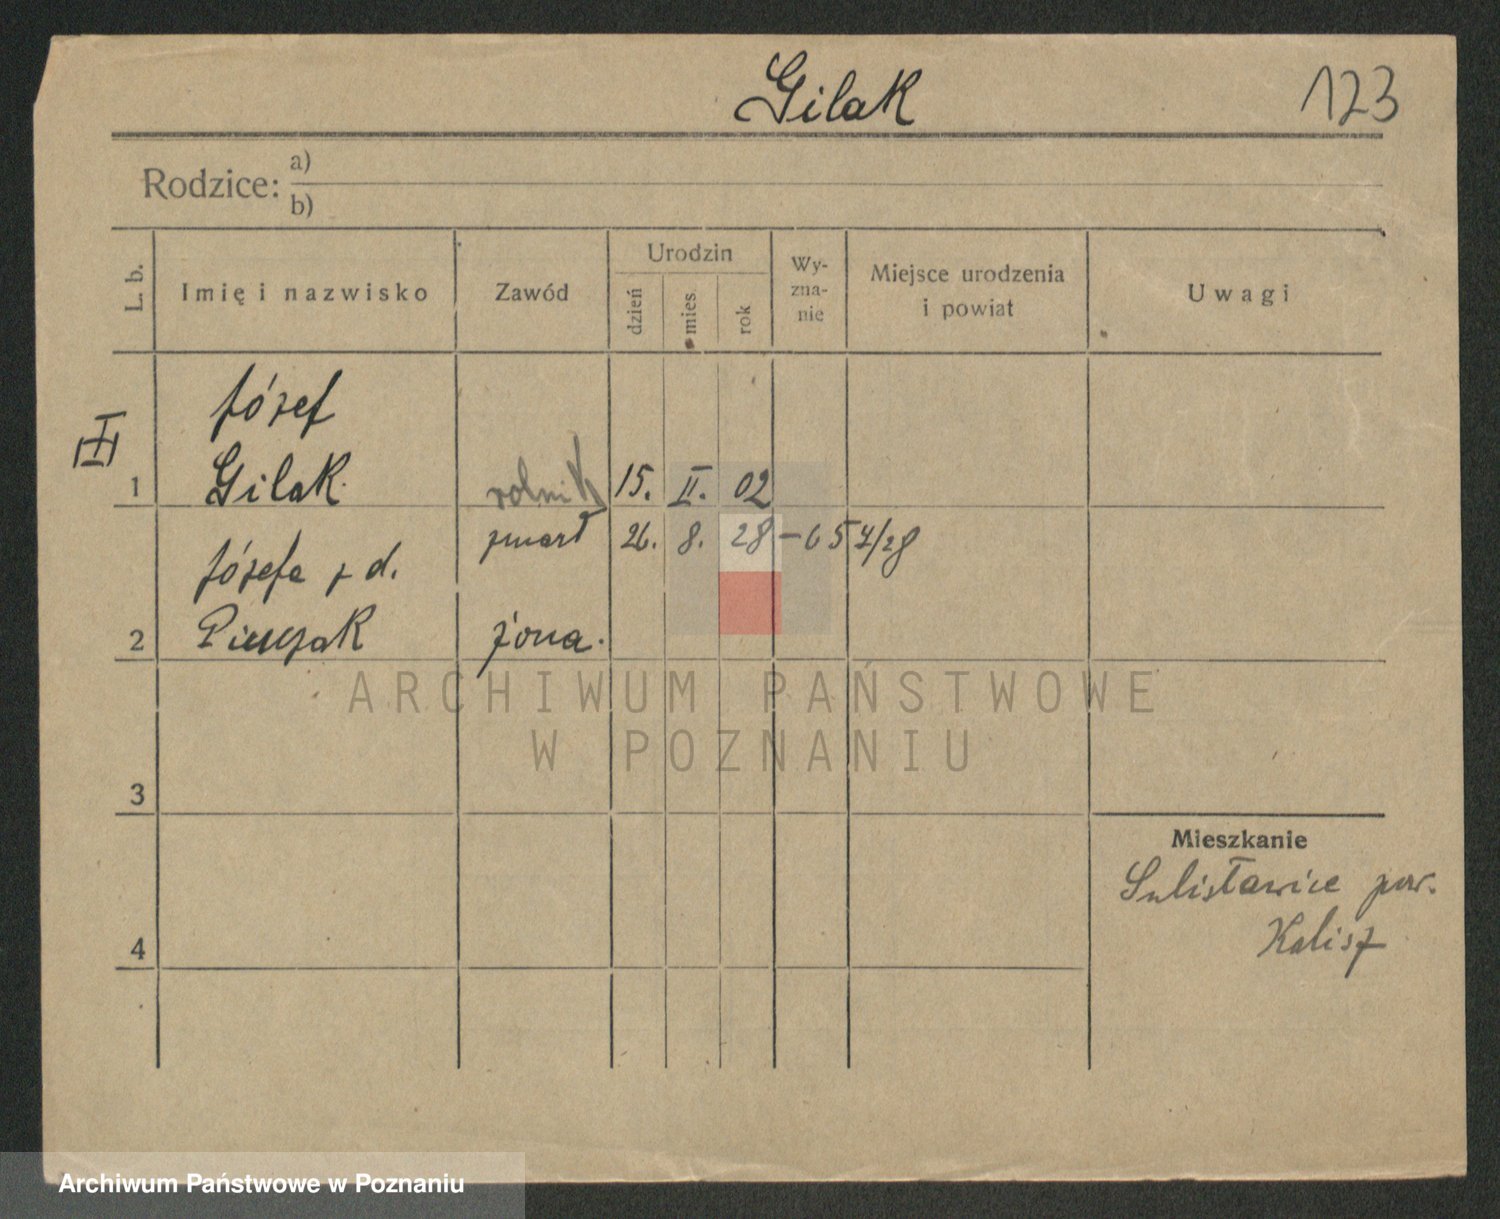 Gilak 123
Rodzice: a)
b)
L. b.
Imię i nazwisko
Zawód
Urodzin
dzień
mies.
rok
Wy-
zna-
nie
Miejsce urodzenia
i powiat
Uwagi
III
Józef
1 Gilak rolnik 15. II. 02
zmarł 26. 8. 28 - 657/28
Józefa z d.
2 żona.
3
Mieszkanie
Sulisławice pow.
Kalisz
4
ARCHIWUM PAŃSTWOWE
W POZNANIU
Archiwum Państwowe w Poznaniu